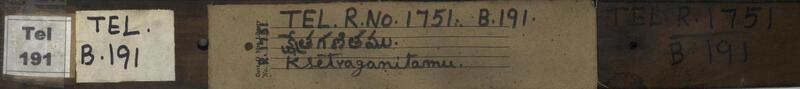 Tel
191
TEL.
B.191
TEL. R. No. 1751. B.191.
క్షేత్రగణితము.
Ksētragaṇitamu.
TEL. R. 1751
B 191